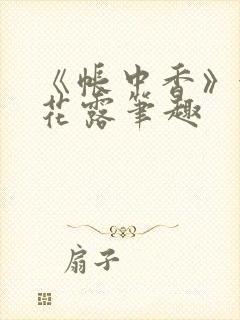 《帐中香》
花露笔趣
扇子